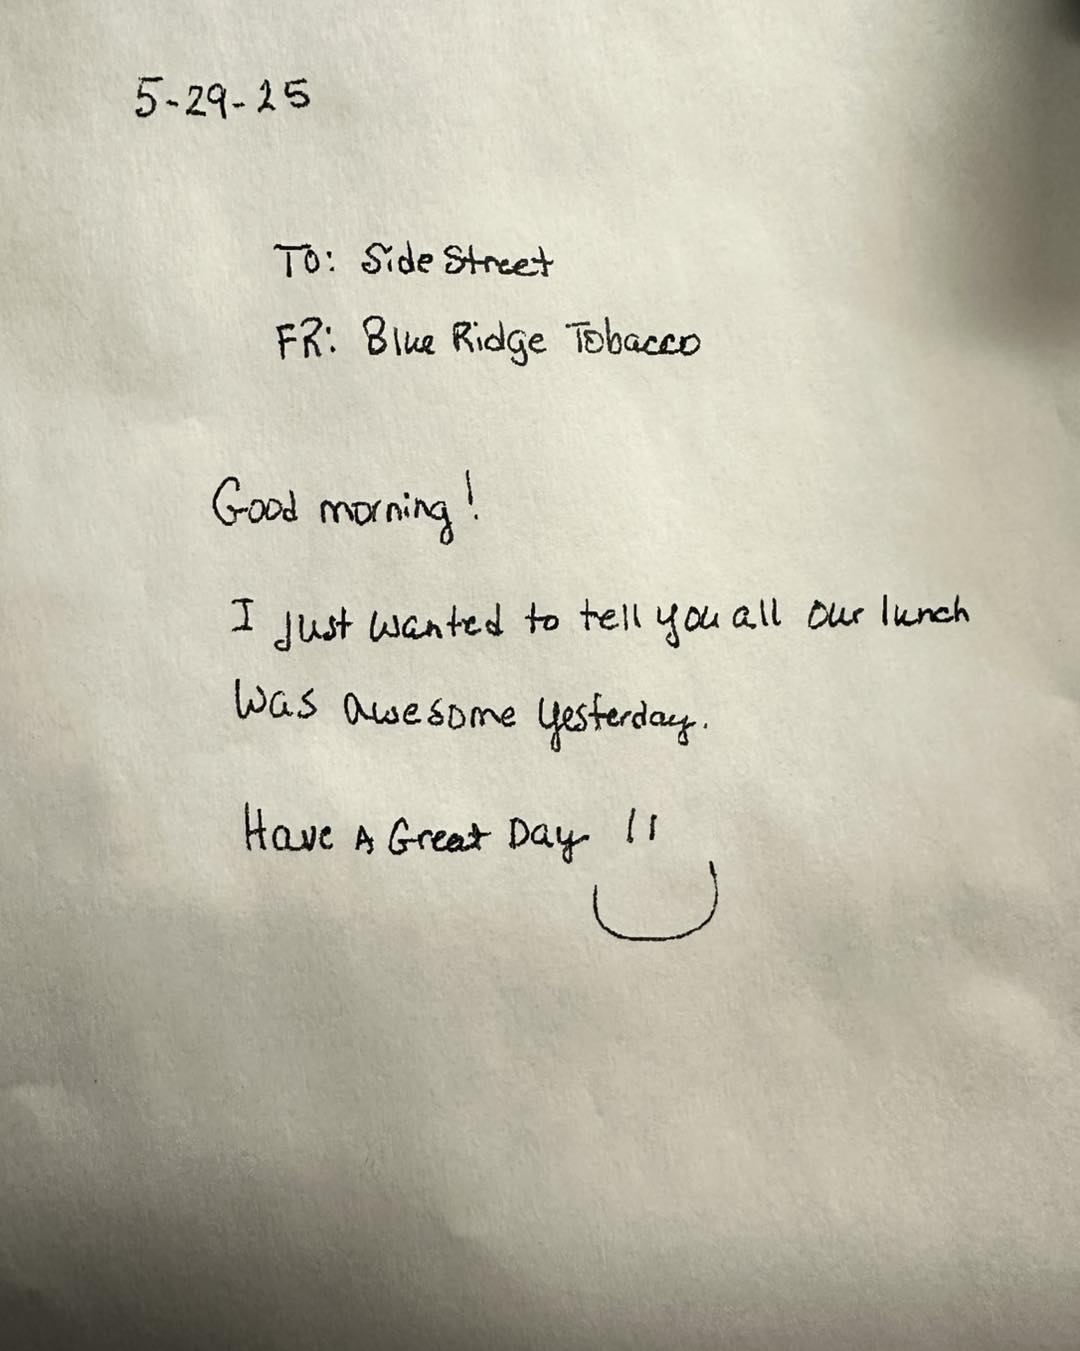 5-29-25
TO: Side Street
FR: Blue Ridge Tobacco
Good morning!
I just wanted to tell you all our lunch
was awesome yesterday.
Have A Great Day !!